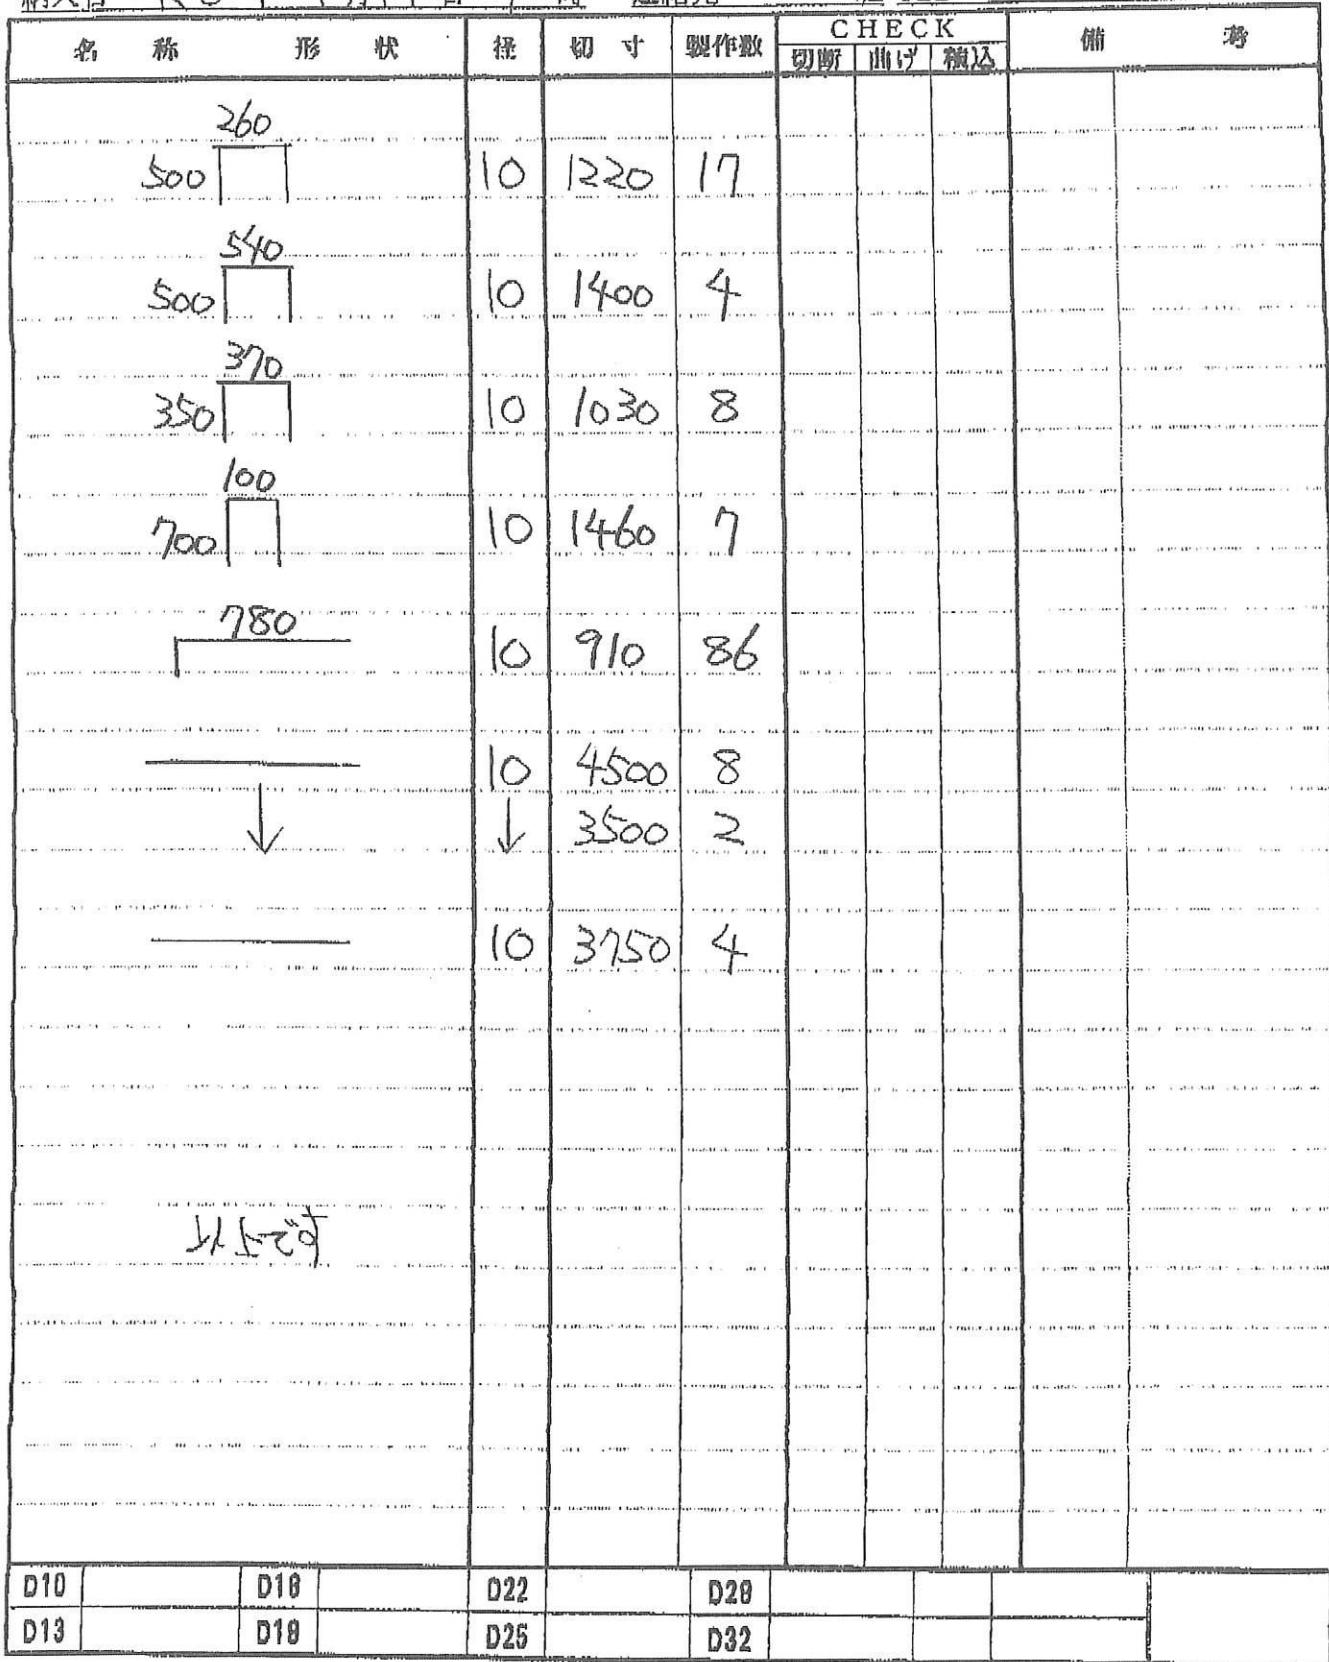 名 称 形 状 径 切 寸 製作数 CHECK 備 考
切断 曲げ 積込
260
500 10 1220 17
540
500 10 1400 4
370
350 10 1030 8
100
700 10 1460 7
780
10 910 86
10 4500 8
↓ ↓ 3500 2
10 3750 4
以上です
D10 D16 D22 D28
D13 D19 D25 D32